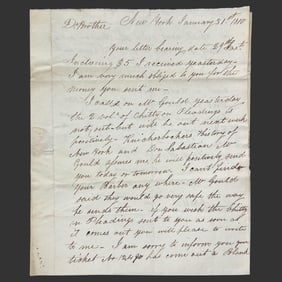 Dr Brother New York January 31st 1810
Your letter bearing date 29th inst
Inclosing $5 I received yesterday
I am very much obliged to you for the
money you sent me.
I called on Mr Gould yesterday
the 2 vol. of Chitty on Pleadings is
not, yet but will be out next week
positively. Knickerbockers History of
New York and Don Sebastian Mr
Gould assures me he will positively send
you today or tomorrow. I can't find
your Razor any where. Mr Gould
said they would go very safe the way
he sends them. if you wish the Chitty
on Pleadings sent to you as soon as
it comes out you will please to write
to me. I am sorry to inform you your
ticket No. has come out a Blank